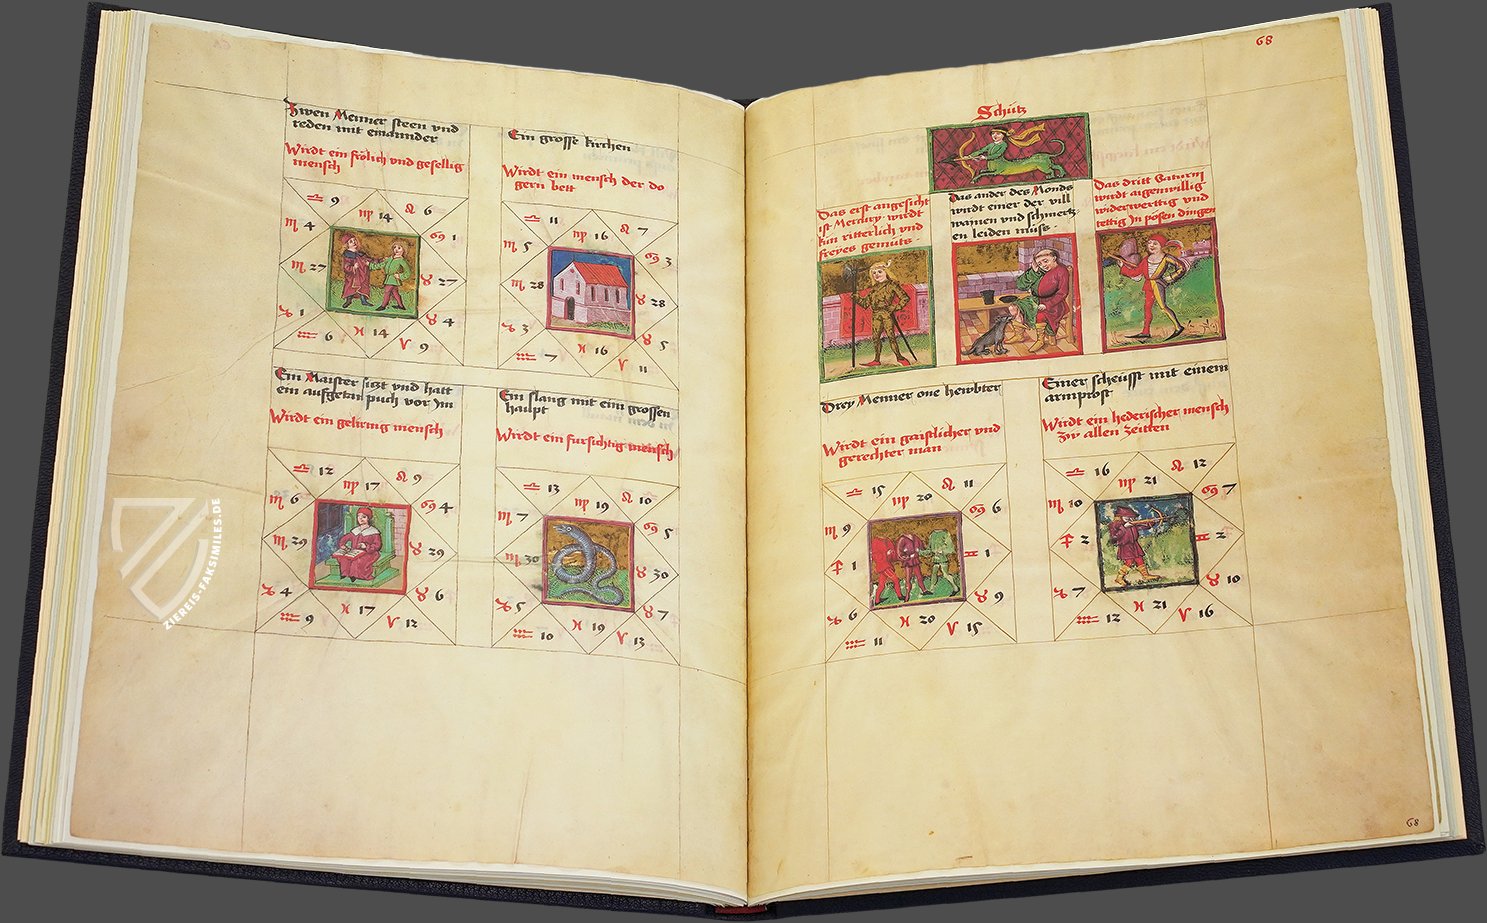 Zwen Menner steen vnd
reden mit einannder
Wirdt ein frölich vnd gesellig
mensch
♎ 9 ♍ 14 ♌ 6
♏ 4 ♋ 1
♏ 27 ♉ 27
♑ 1 ♉ 4
♒ 6 ♓ 14 ♈ 9
Ein grosse kirchen
Wirdt ein mensch der do
gern bett
♎ 11 ♍ 16 ♌ 7
♏ 5 ♋ 3
♏ 28 ♉ 28
♑ 3 ♉ 5
♒ 7 ♓ 16 ♈ 11
Ein Maister sitzt vnd hatt
ein aufgetan puch vor Im
Wirdt ein gelirnig mensch
♎ 12 ♍ 17 ♌ 9
♏ 6 ♋ 4
♏ 29 ♉ 29
♑ 4 ♉ 6
♒ 9 ♓ 17 ♈ 12
Ein slang mit eim grossen
haupt
Wirdt ein fursichtig mensch
♎ 13 ♍ 19 ♌ 10
♏ 7 ♋ 5
♏ 30 ♉ 30
♑ 5 ♉ 7
♒ 10 ♓ 19 ♈ 13
68
Schütz
Das erst angesicht
ist Mercury wirdt
kün ritterlich vnd
freyes gemüts.
Das ander des Monds
wirdt einer der vill
wainen vnd schmertz
en leiden muss.
Das dritt Saturni
wirdt aigenwillig
widerwerttig vnd
tettig In posen dingen
Drey Menner one hewbter
Wirdt ein gaistlicher vnd
gerechter man
♎ 15 ♍ 20 ♌ 11
♏ 9 ♋ 6
♐ 1 ♊ 1
♑ 6 ♉ 9
♒ 11 ♓ 20 ♈ 15
Einer scheusst mit einem
armprost
Wirdt ein hederischer mensch
Zw allen Zeitten
♎ 16 ♍ 21 ♌ 12
♏ 10 ♋ 7
♐ 2 ♊ 2
♑ 7 ♉ 10
♒ 12 ♓ 21 ♈ 16
68
ZIEREIS-FAKSIMILES.DE